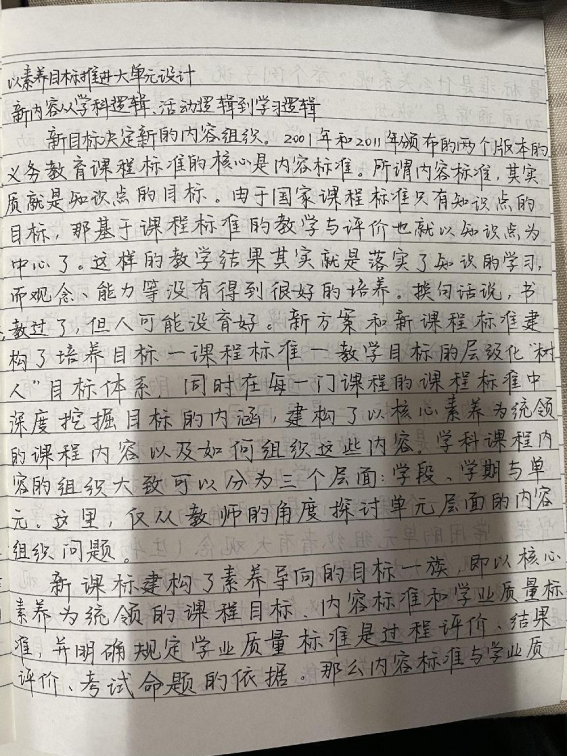 以素养目标推进大单元设计
新内容从学科逻辑、活动逻辑到学习逻辑
新目标决定新的内容组织。2001年和2011年颁布的两个版本的
义务教育课程标准的核心是内容标准。所谓内容标准,其实
质就是知识点的目标。由于国家课程标准只有知识点的
目标,那基于课程标准的教学与评价也就以知识点为
中心了。这样的教学结果其实就是落实了知识的学习,
而观念、能力等没有得到很好的培养。换句话说,书
教过了,但人可能没育好。新方案和新课程标准建
构了培养目标一课程标准一教学目标的层级化“树
人”目标体系,同时在每一门课程的课程标准中
深度挖掘目标的内涵,建构了以核心素养为统领
的课程内容以及如何组织这些内容。学科课程内
容的组织大致可以分为三个层面:学段、学期与单
元。这里,仅从教师的角度探讨单元层面的内容
组织问题。
新课标建构了素养导向的目标一族,即以核心
素养为统领的课程目标、内容标准和学业质量标
准,并明确规定学业质量标准是过程评价、结果
评价、考试命题的依据。那么内容标准与学业质